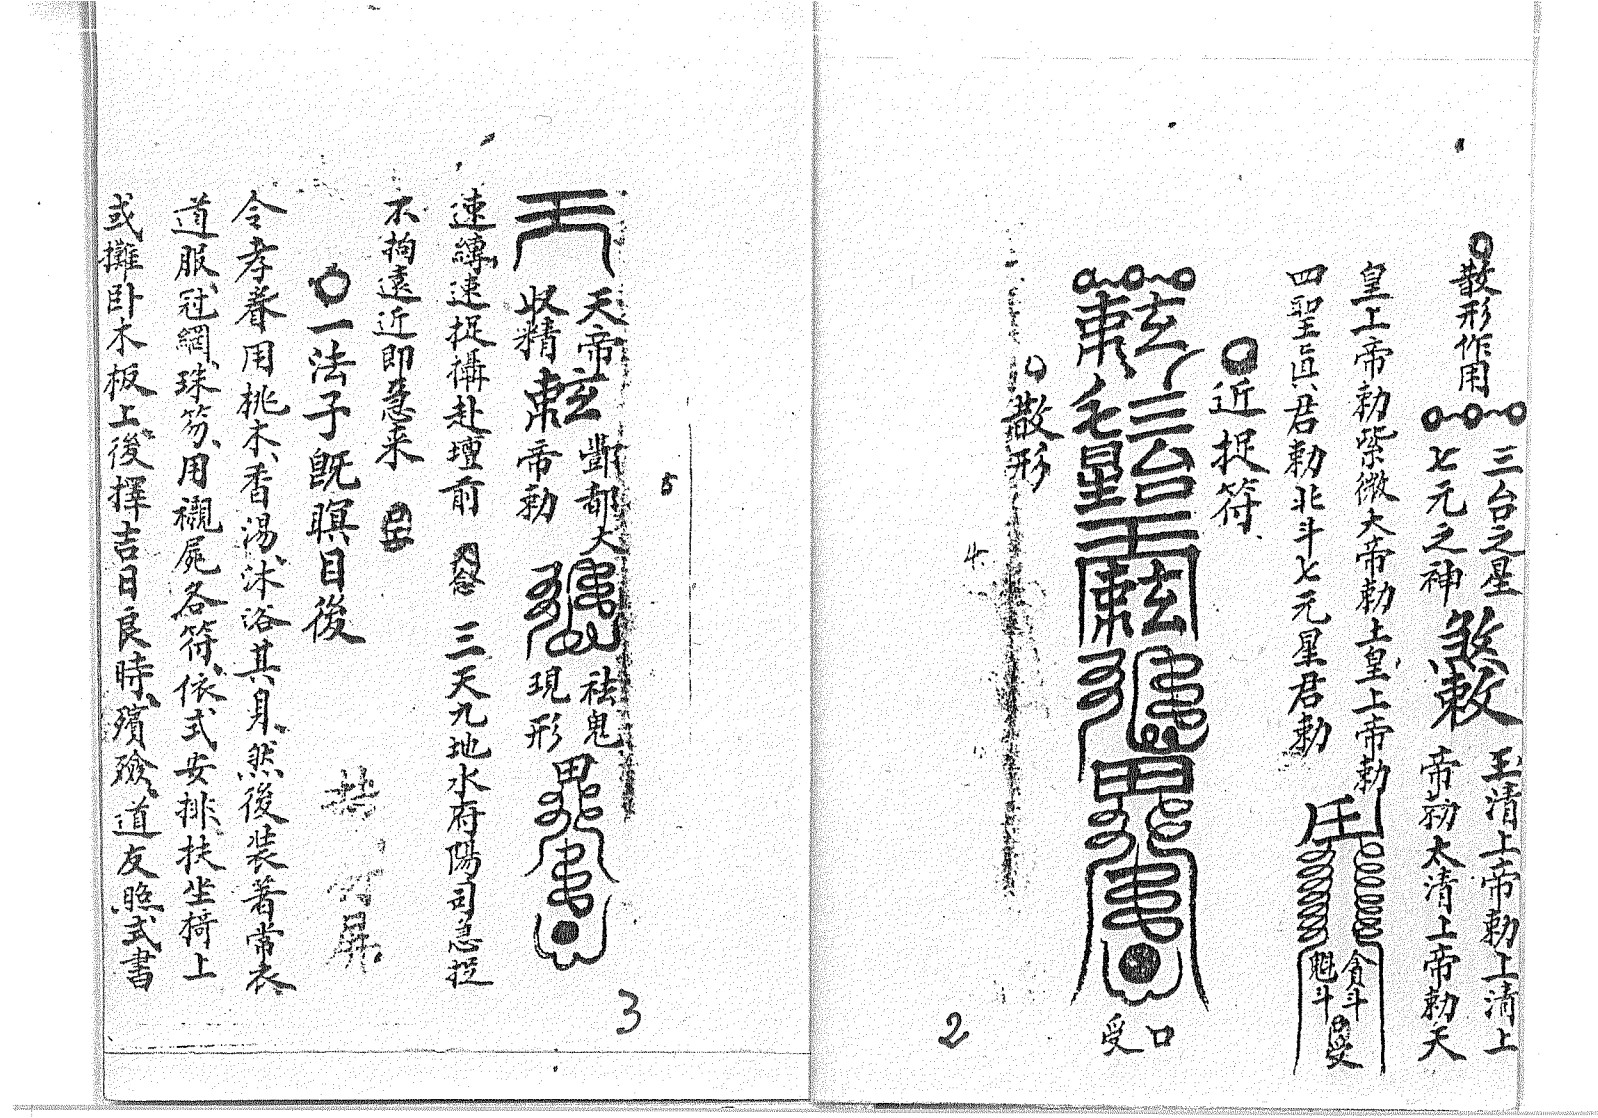 散形作用
三台之星
七元之神
煞敕
玉清上帝勅上清上
帝勅太清上帝勅天
皇上帝勅紫微大帝勅上皇上帝勅
四聖眞君勅北斗七元星君勅
貪斗
魁斗
受
近捉符
三台
七星
口
受
散形
4
2
5
天帝
收精
酆都大
帝勅
祛鬼
現形
速縛速捉攝赴壇前
三天九地水府陽司急捉
不拘遠近即急來
一法子既瞑目後
令孝眷用桃木香湯沐浴其身然後裝著常衣
道服冠網珠笏用襯屍各符依式安排扶坐椅上
或攤卧木板上後擇吉日良時殯殮道友照式書
3